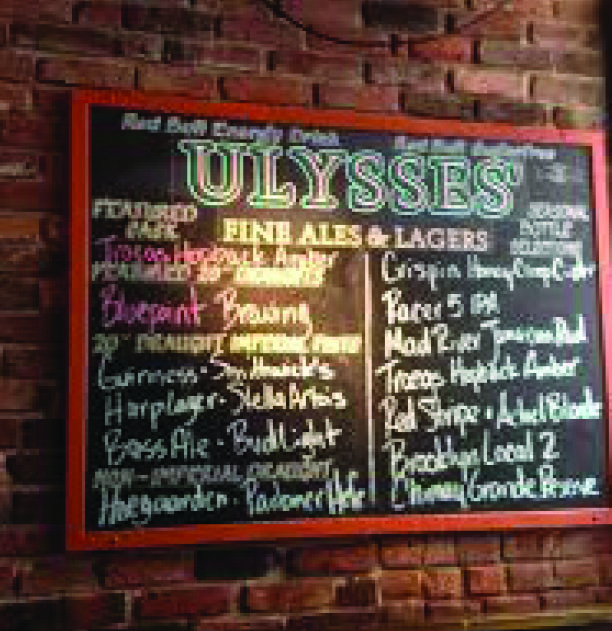 Red Bull Energy Drink
Red Bull Sugarfree
ULYSSES'
FINE ALES & LAGERS
FEATURED
Troegs Hopback Amber
FEATURED 20" DRAUGHTS
Bluepoint Brewing
20" DRAUGHT IMPERIAL PINTS
Guinness · Smithwick's
Harp lager · Stella Artois
Bass Ale · Bud Light
NON-IMPERIAL DRAUGHT
Hoegaarden · Radoner Hefe
SEASONAL
BOTTLE
SELECTIONS
Crispin Honey Crisp Cider
Racer 5 IPA
Mad River Jamaican Red
Troegs Hopback Amber
Red Stripe · Achel Blonde
Brooklyn Local 2
Chimay Grande Reserve